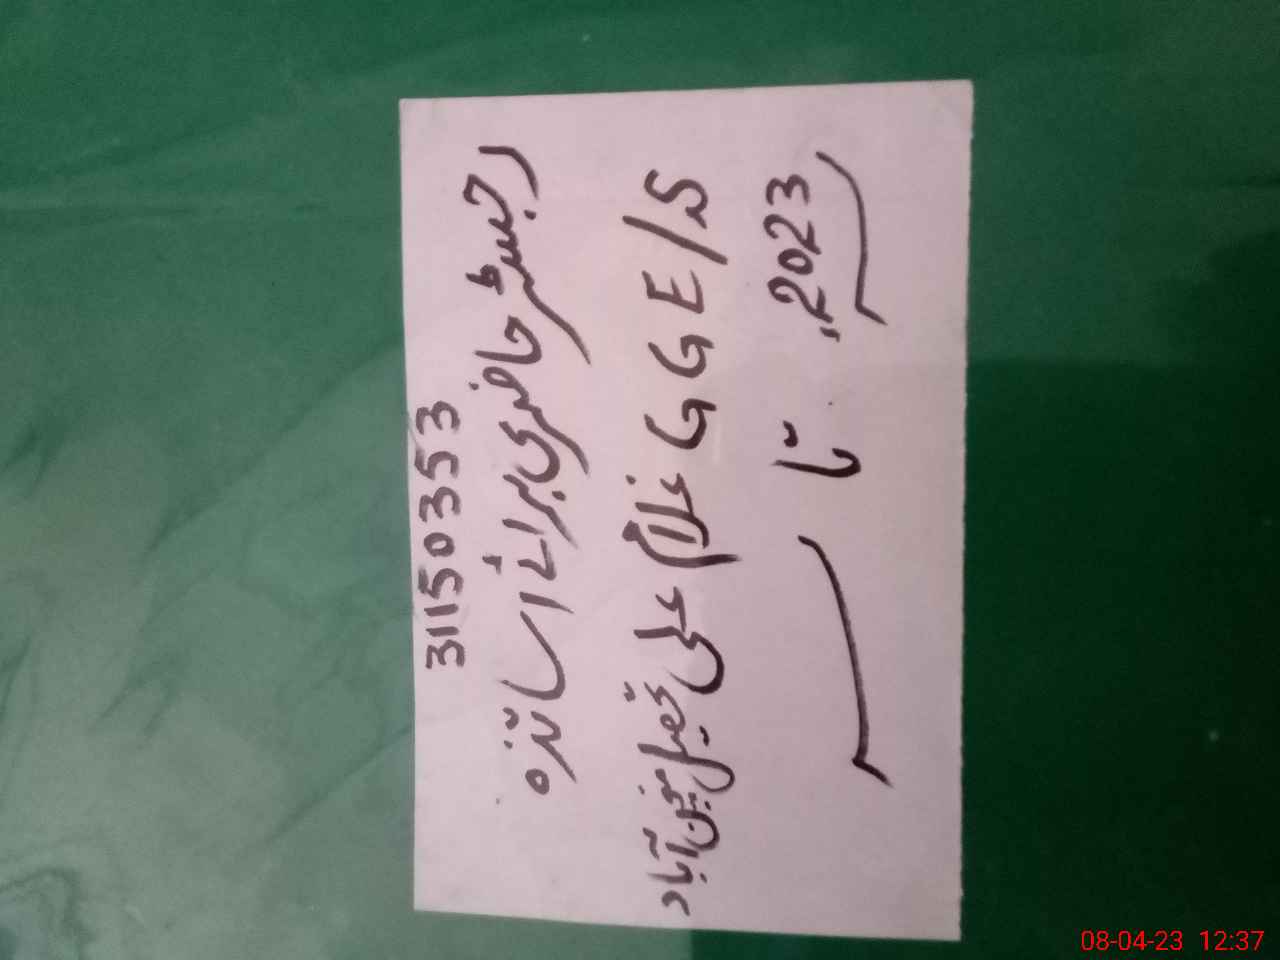 31150353
رجسٹر حاضری برائے اساتذہ
GGE/S غلام علی تحصیل منچن آباد
2023ء تا
08-04-23 12:37